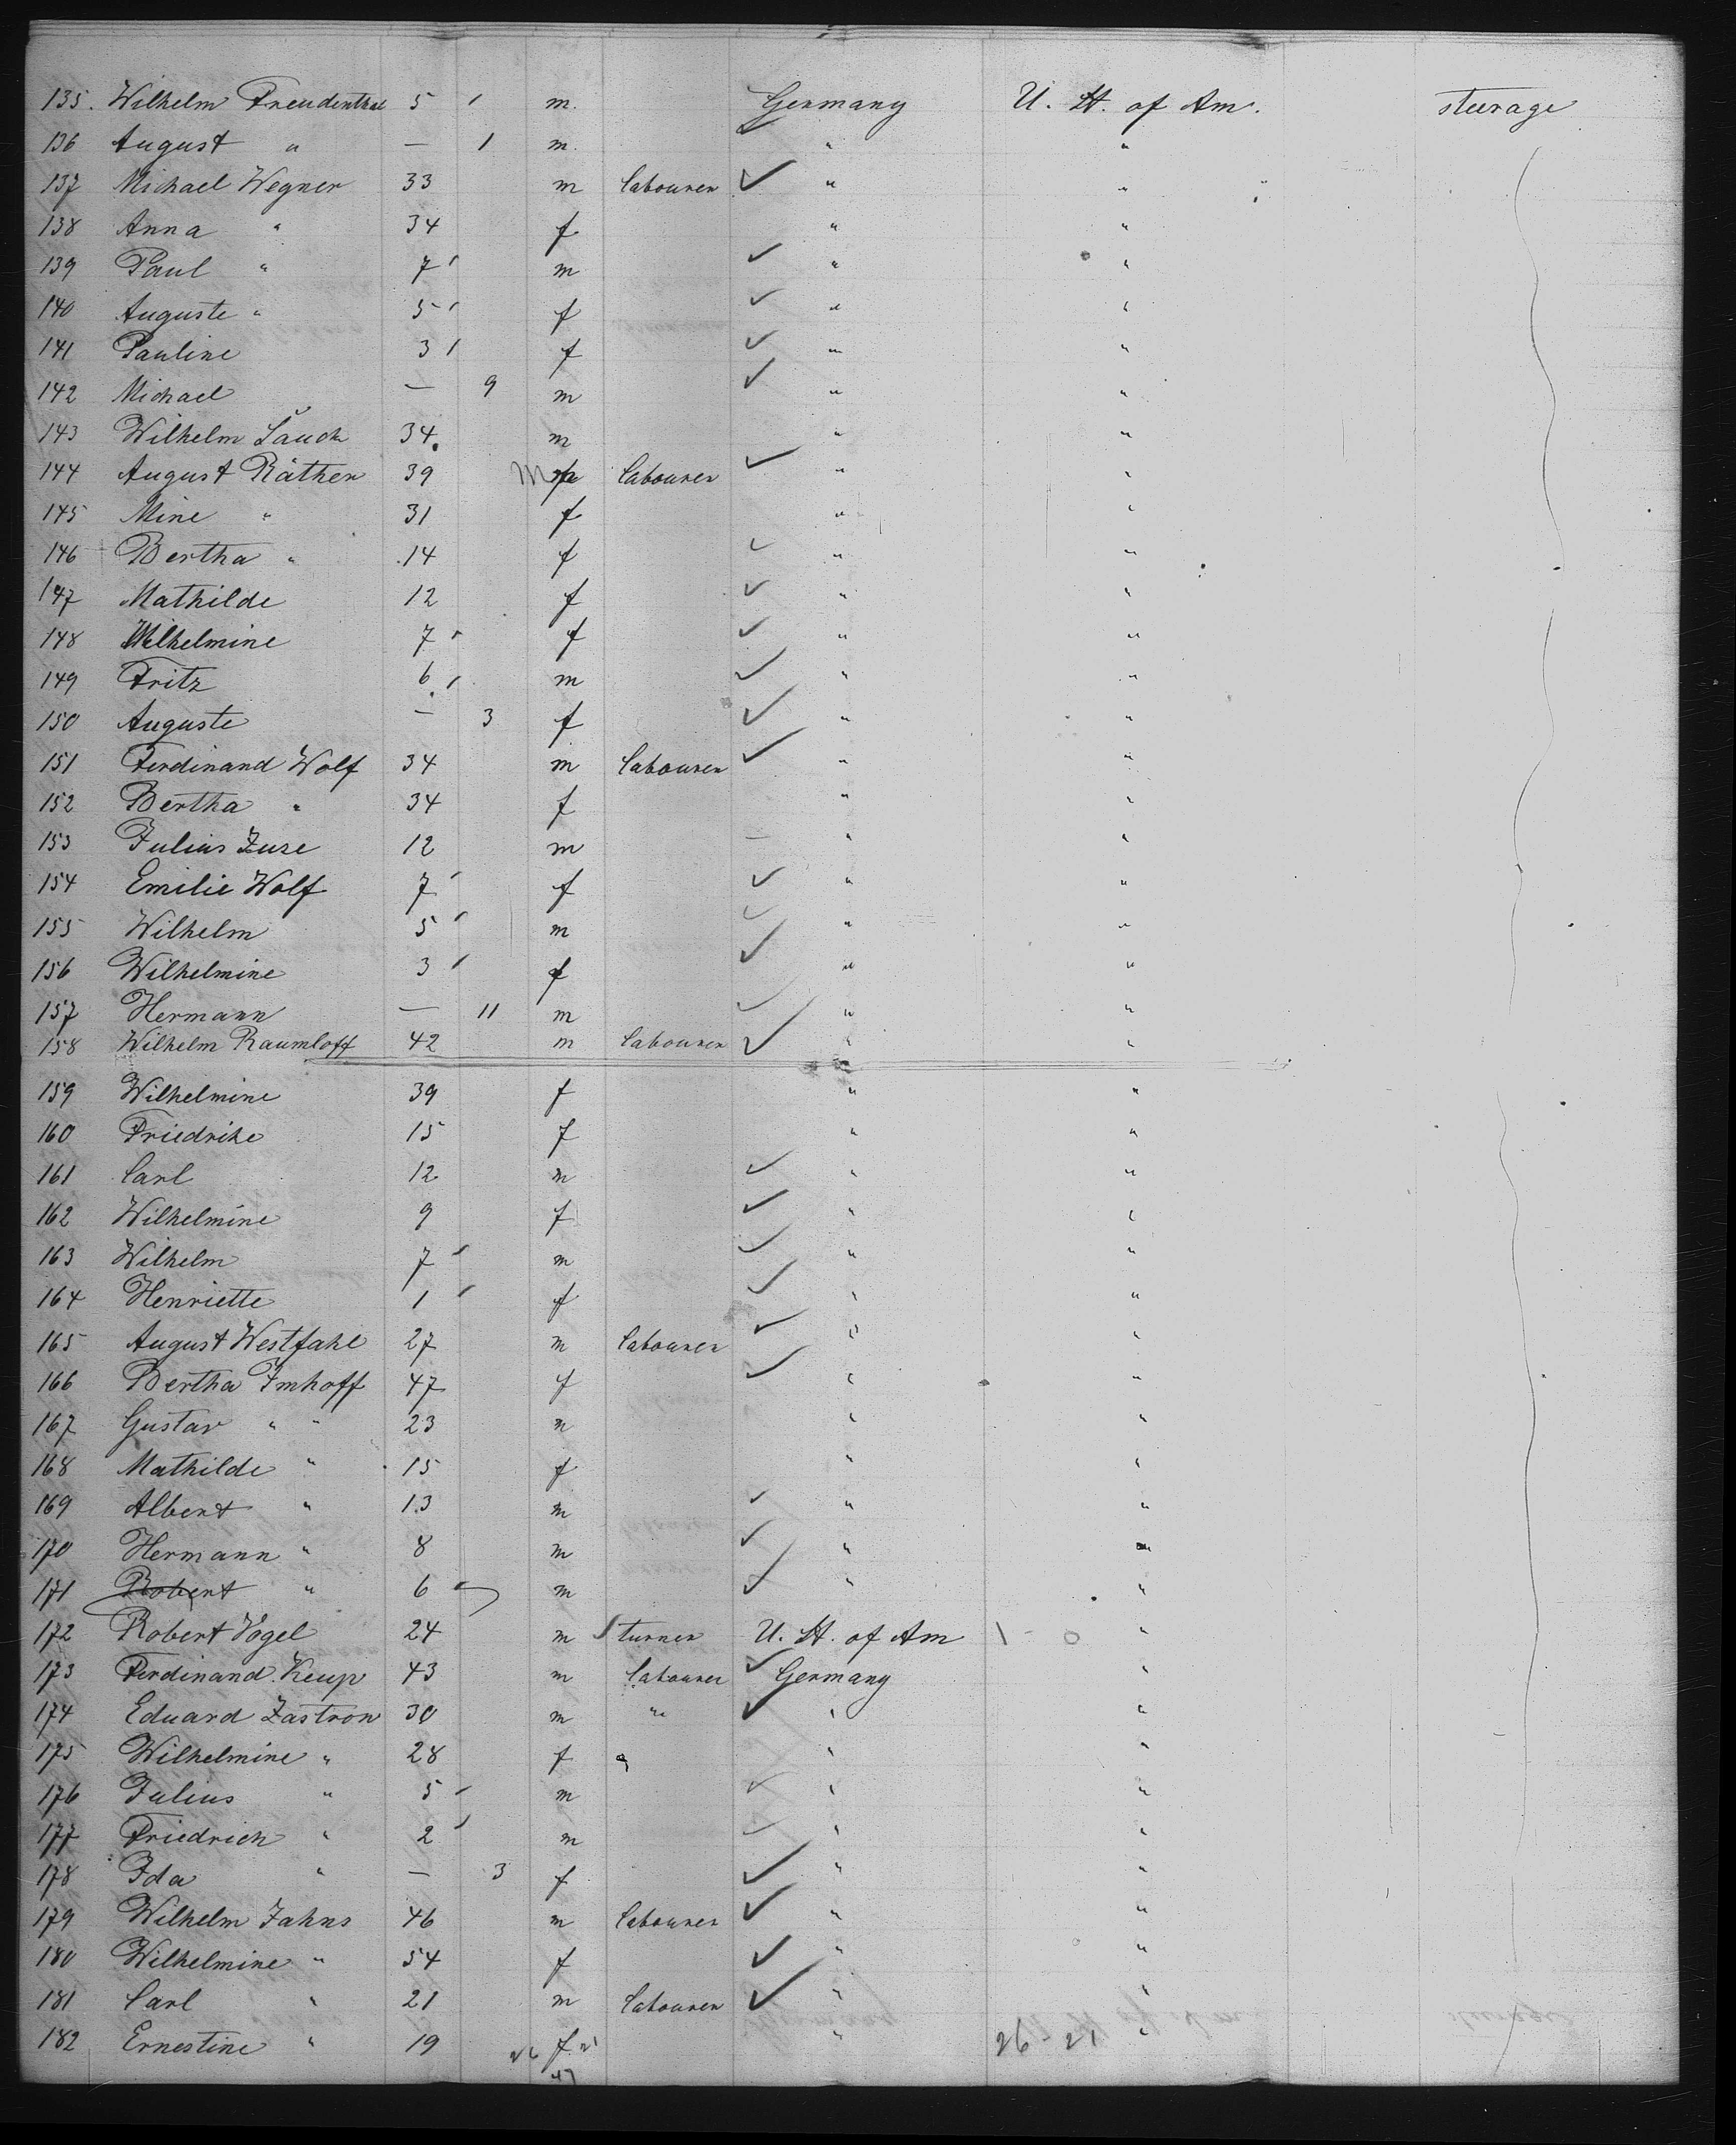 135. Wilhelm Freudenthal 5 m. Germany U. St. of Am. steerage
136 August " — 1 m. " "
137 Michael Wegner 33 m labourer " "
138 Anna " 34 f " "
139 Paul " 7 m " "
140 Auguste " 5 f " "
141 Pauline 3 f " "
142 Michael — 9 m " "
143 Wilhelm 34 m " "
144 August Räther 39 m labourer " "
145 Mine " 31 f " "
146 Bertha " 14 f " "
147 Mathilde 12 f " "
148 Wilhelmine 7 f " "
149 Fritz 6 m " "
150 Auguste — 3 f " "
151 Ferdinand Wolf 34 m labourer " "
152 Bertha " 34 f " "
153 Julius Zuse 12 m " "
154 Emilie Wolf 7 f " "
155 Wilhelm 5 m " "
156 Wilhelmine 3 f " "
157 Hermann — 11 m " "
158 Wilhelm Raumloff 42 m labourer " "
159 Wilhelmine 39 f " "
160 Friedrike 15 f " "
161 Carl 12 m " "
162 Wilhelmine 9 f " "
163 Wilhelm 7 m " "
164 Henriette 1 f " "
165 August Westfahl 27 m labourer " "
166 Bertha Imhoff 47 f " "
167 Gustav " " 23 m " "
168 Mathilde " 15 f " "
169 Albert " 13 m " "
170 Hermann " 8 m " "
171 Robert " 6 m " "
172 Robert Vogel 24 m turner U. St. of Am 1 - 0 "
173 Ferdinand Keup 43 m labourer Germany "
174 Eduard Zastrow 30 m " " "
175 Wilhelmine " 28 f " "
176 Julius " 5 m " "
177 Friedrich " 2 m " "
178 Ida " — 3 f " "
179 Wilhelm Jahns 46 m labourer " "
180 Wilhelmine " 54 f " "
181 Carl " 21 m labourer " "
182 Ernestine " 19 26 f 21 " 26 - 21 "
47